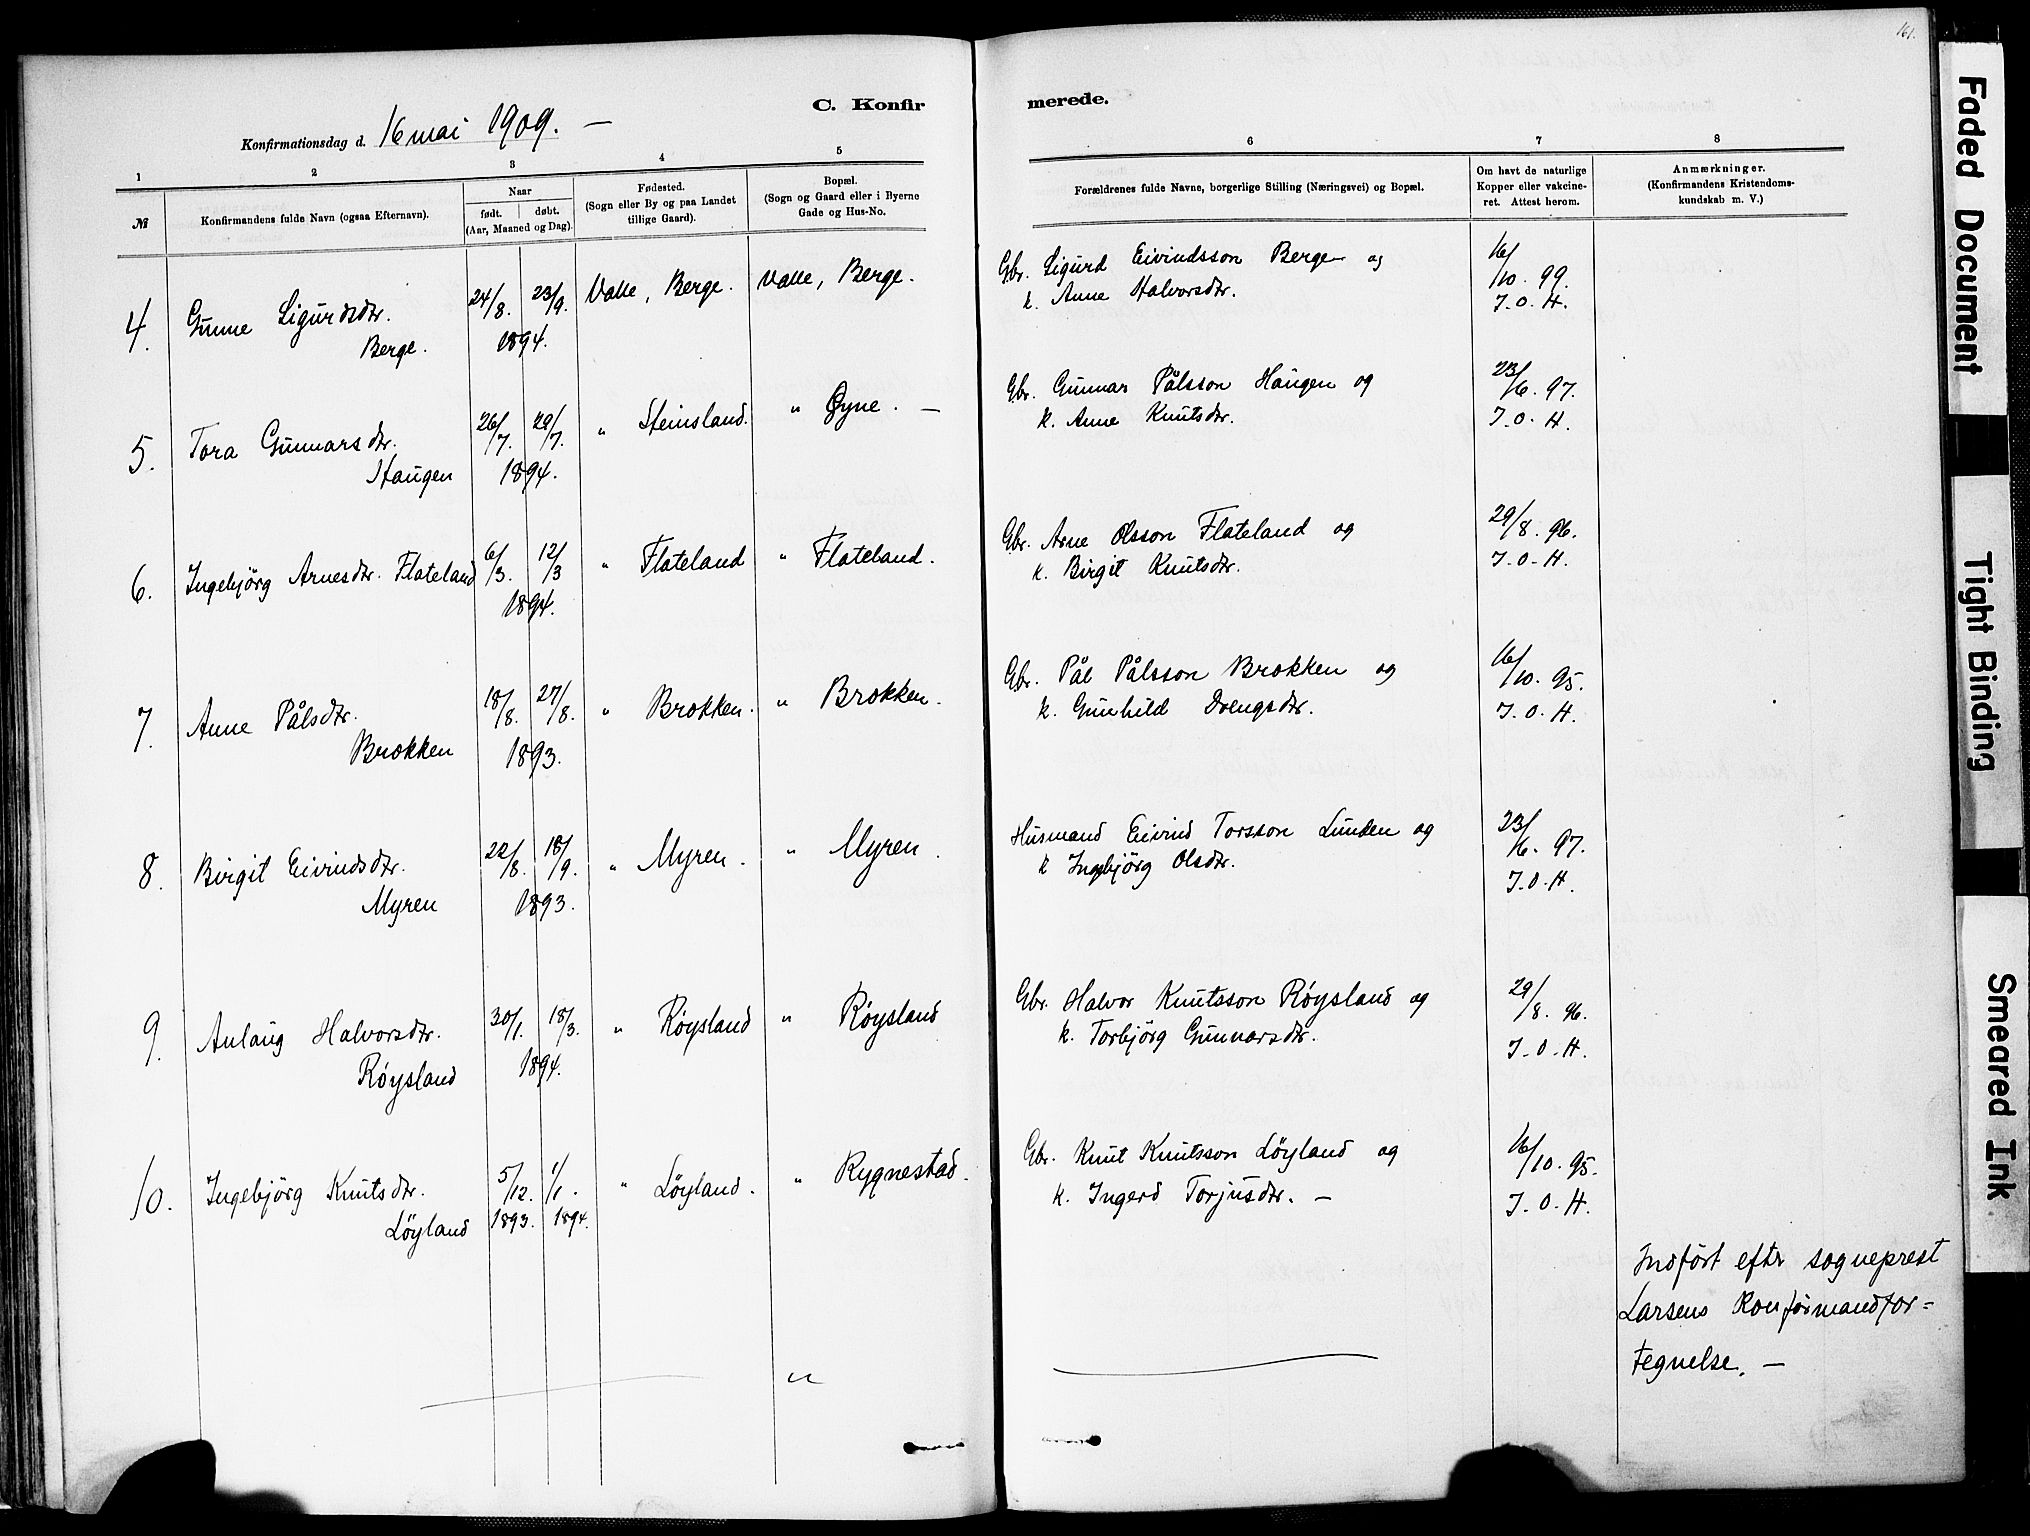 161.
C. Konfir merede.
Konfirmationsdag d. 16 mai 1909. –
1 2 3 4 5 6 7 8
№
Konfirmandens fulde Navn (ogsaa Efternavn).
Naar
født. døbt.
(Aar, Maaned og Dag).
Fødested.
(Sogn eller By og paa Landet
tillige Gaard).
Bopæl.
(Sogn og Gaard eller i Byerne
Gade og Hus-No.
Forældrenes fulde Navne, borgerlige Stilling (Næringsvei) og Bopæl.
Om havt de naturlige
Kopper eller vakcine-
ret. Attest herom.
Anmærkninger.
(Konfirmandens Kristendoms-
kundskab m. V.)
4. Gunne Sigurdsdtr. 24/8. 23/9. Valle, Berge. Valle, Berge. Gbr. Sigurd Eivindsson Berge og 16/10. 99.
Berge. 1894. k. Anne Halvorsdtr. J. O. H.
5. Tora Gunnarsdtr. 26/7. 29/7. " Steinsland. " Øyne. – Gbr. Gunnar Pålsson Haugen og 23/6. 97.
Haugen 1894. k. Anne Knutsdtr. J. O. H.
6. Ingebjörg Arnesdtr. Flateland 6/3. 12/3 " Flateland " Flateland. Gbr. Arne Olsson Flateland og 29/8. 96.
1894. k. Birgit Knutsdtr. J. O. H.
7. Anne Pålsdtr. 18/8. 27/8. " Brokken. " Brokken. Gbr. Pål Pålsson Brokken og 16/10. 95.
Brokken 1893. k. Gunhild Drengsdtr. J. O. H.
8. Birgit Eivindsdtr. 22/8. 18/9. " Myren. " Myren. Husmand Eivind Torsson Lunden og 23/6. 97.
Myren 1893. k Ingebjörg Olsdtr. J. O. H.
9. Aulaug Halvorsdtr. 30/1. 18/3. " Röysland " Röysland Gbr. Halvor Knutsson Röysland og 29/8. 96.
Röysland 1894. k. Torbjörg Gunnarsdtr. J. O. H.
10. Ingebjörg Knutsdtr. 5/12. 1/1. " Löyland. " Rygnestad. Gbr. Knut Knutsson Löyland og 16/10. 95.
Löyland 1893. 1894. k. Ingerd Torjusdtr. – J. O. H.
Indfört efter sogneprest
Larsens Konfirmandfor=
tegnelse. –
Faded Document
Tight Binding
Smeared Ink